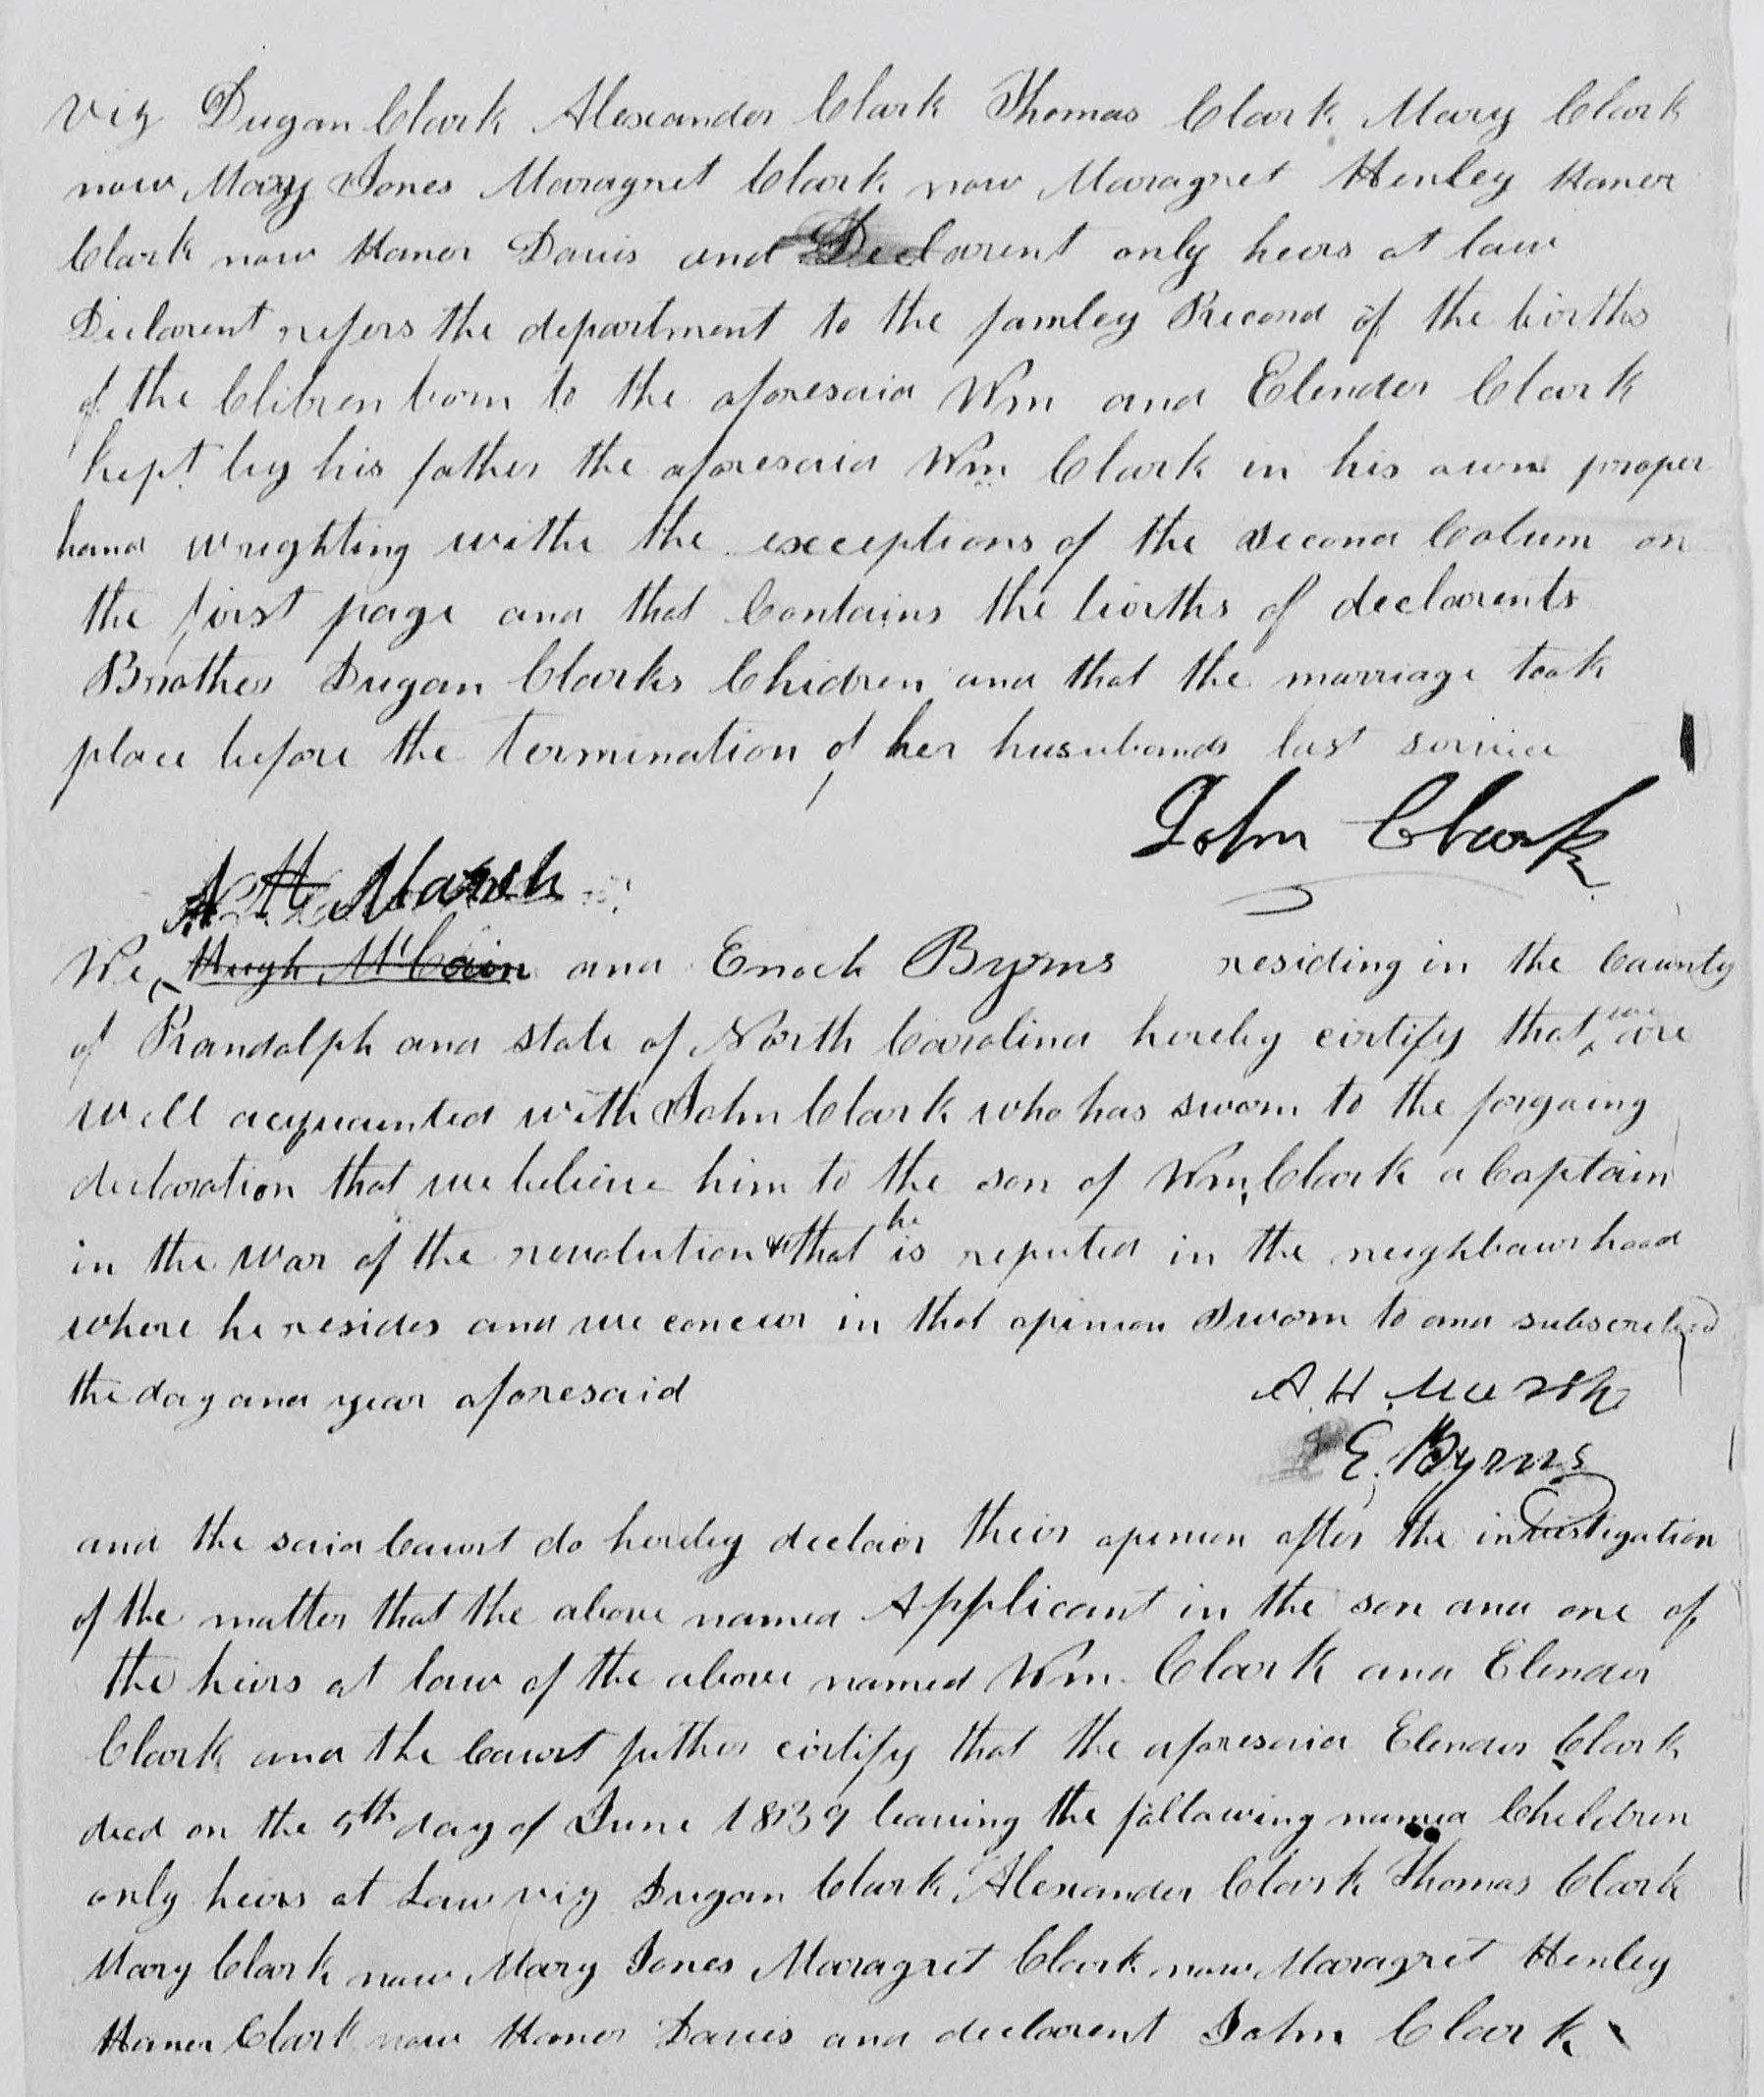 viz Dugan Clark Alexander Clark Thomas Clark Mary Clark
now Mary Jones Maragret Clark now Maragret Henley Haner
Clark now Haner Davis and Declarent only heirs at law
Declarent refers the department to the famley Record of the births
of the Clibren born to the aforesaid Wm and Elender Clark
kept by his father the aforesaid Wm Clark in his own proper
hand wrighting withe the exceptions of the second Colum on
the first page and that Contains the births of declarents
Brother Dugan Clarks Chidren and that the marriage took
place before the termination of her husubands last service
John Clark
A H Marsh
We Hugh McCain and Enoch Byrns residing in the County
of Randolph and state of North Carolina hereby certify that we are
well acquainted with John Clark who has sworn to the forgoing
declaration that we believe him to the son of Wm Clark a Captain
in the war of the revolution & that he is reputed in the neighbourhood
where he resides and we concur in that opinion sworn to and subscribed
the day and year aforesaid
A. H. Marsh
E. Byrns
and the said Court do hereby declair their opinion after the investigation
of the matter that the above named Applicant in the son and one of
the heirs at law of the above named Wm. Clark and Elender
Clark and the Court futher certify that the aforesaid Elender Clark
died on the 5th day of June 1839 leaving the following named Cheldren
only heirs at Law viz Dugan Clark Alexander Clark Thomas Clark
Mary Clark now Mary Jones Maragret Clark now Maragret Henley
Haner Clark now Haner Davis and declarent John Clark